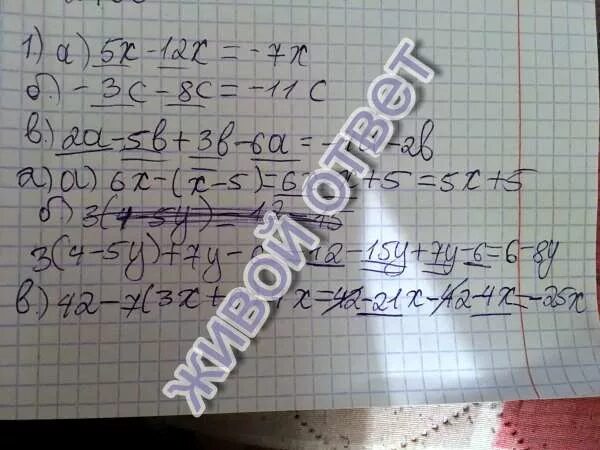 1) а) 5x - 12x = -7x
б) -3c - 8c = -11c
в) 2a - 5b + 3b - 6a = - -2b
2) а) 6x - (x - 5) = 6 x + 5 = 5x + 5
б) 3(4 - 5y) =
3(4 - 5y) + 7y - 12 - 15y + 7y - 6 = 6 - 8y
в) 42 - 7(3x + x = 42 - 21x - 42 - 4x = -25x
ЖИВОЙ ОТВЕТ